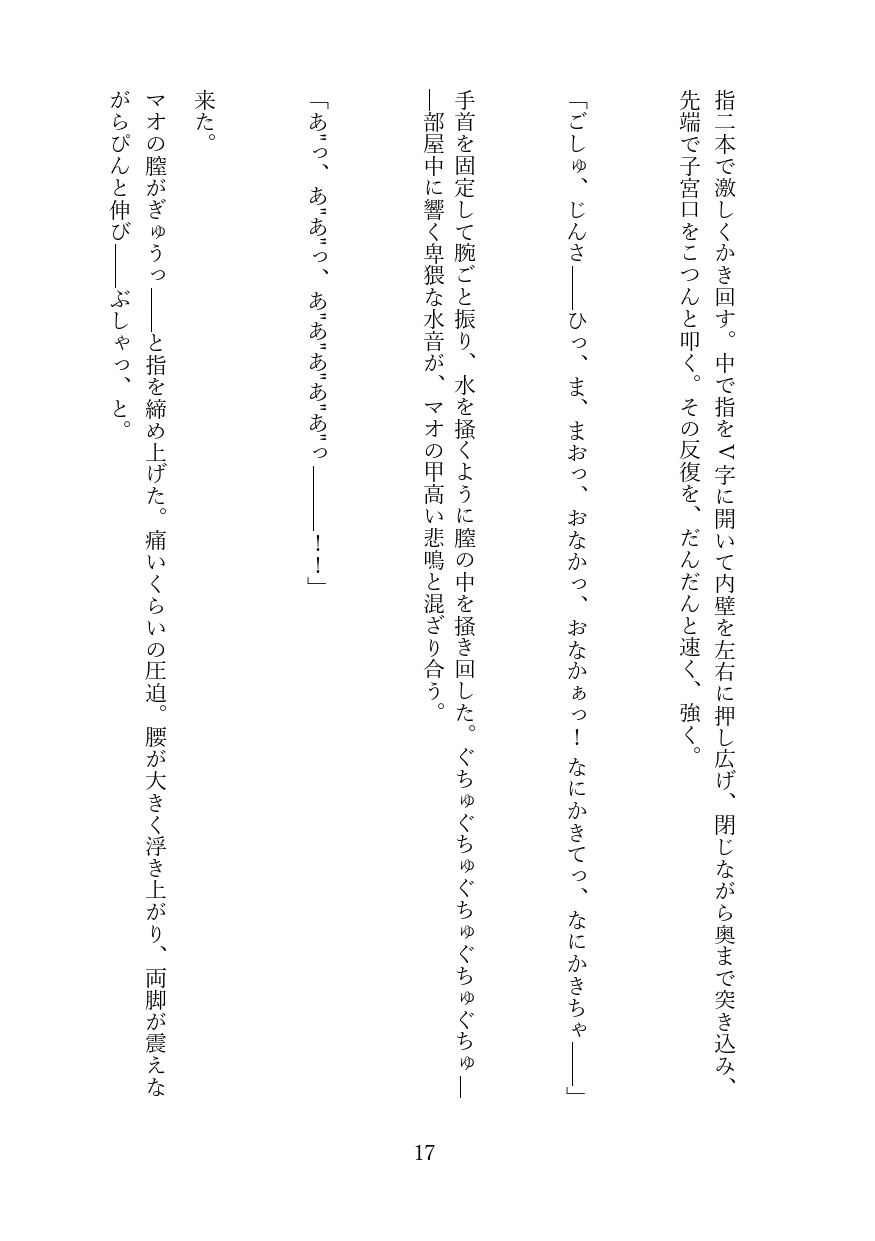 指二本で激しくかき回す。中で指をV字に開いて内壁を左右に押し広げ、閉じながら奥まで突き込み、
先端で子宮口をこつんと叩く。その反復を、だんだんと速く、強く。
「ごしゅ、じんさ――ひっ、ま、まおっ、おなかっ、おなかぁっ！なにかきてっ、なにかきちゃ――」
手首を固定して腕ごと振り、水を掻くように膣の中を掻き回した。ぐちゅぐちゅぐちゅぐちゅぐちゅ―
―部屋中に響く卑猥な水音が、マオの甲高い悲鳴と混ざり合う。
「あ゙っ、あ゙あ゙っ、あ゙あ゙あ゙あ゙あ゙っ―――！！」
来た。
マオの膣がぎゅうっ――と指を締め上げた。痛いくらいの圧迫。腰が大きく浮き上がり、両脚が震えな
がらぴんと伸び――ぶしゃっ、と。
17